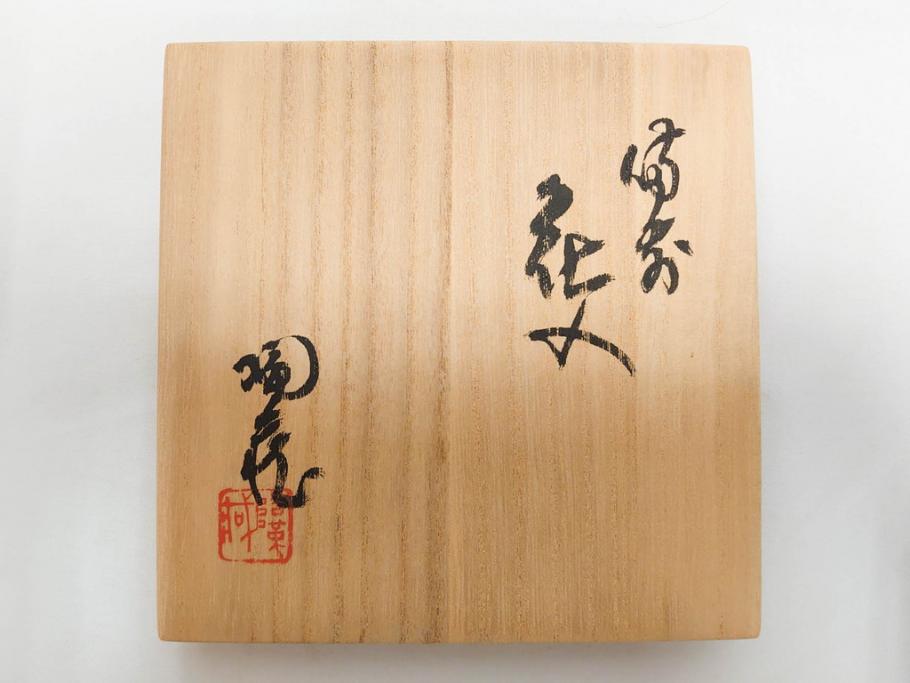 備前
花入
陶蔵